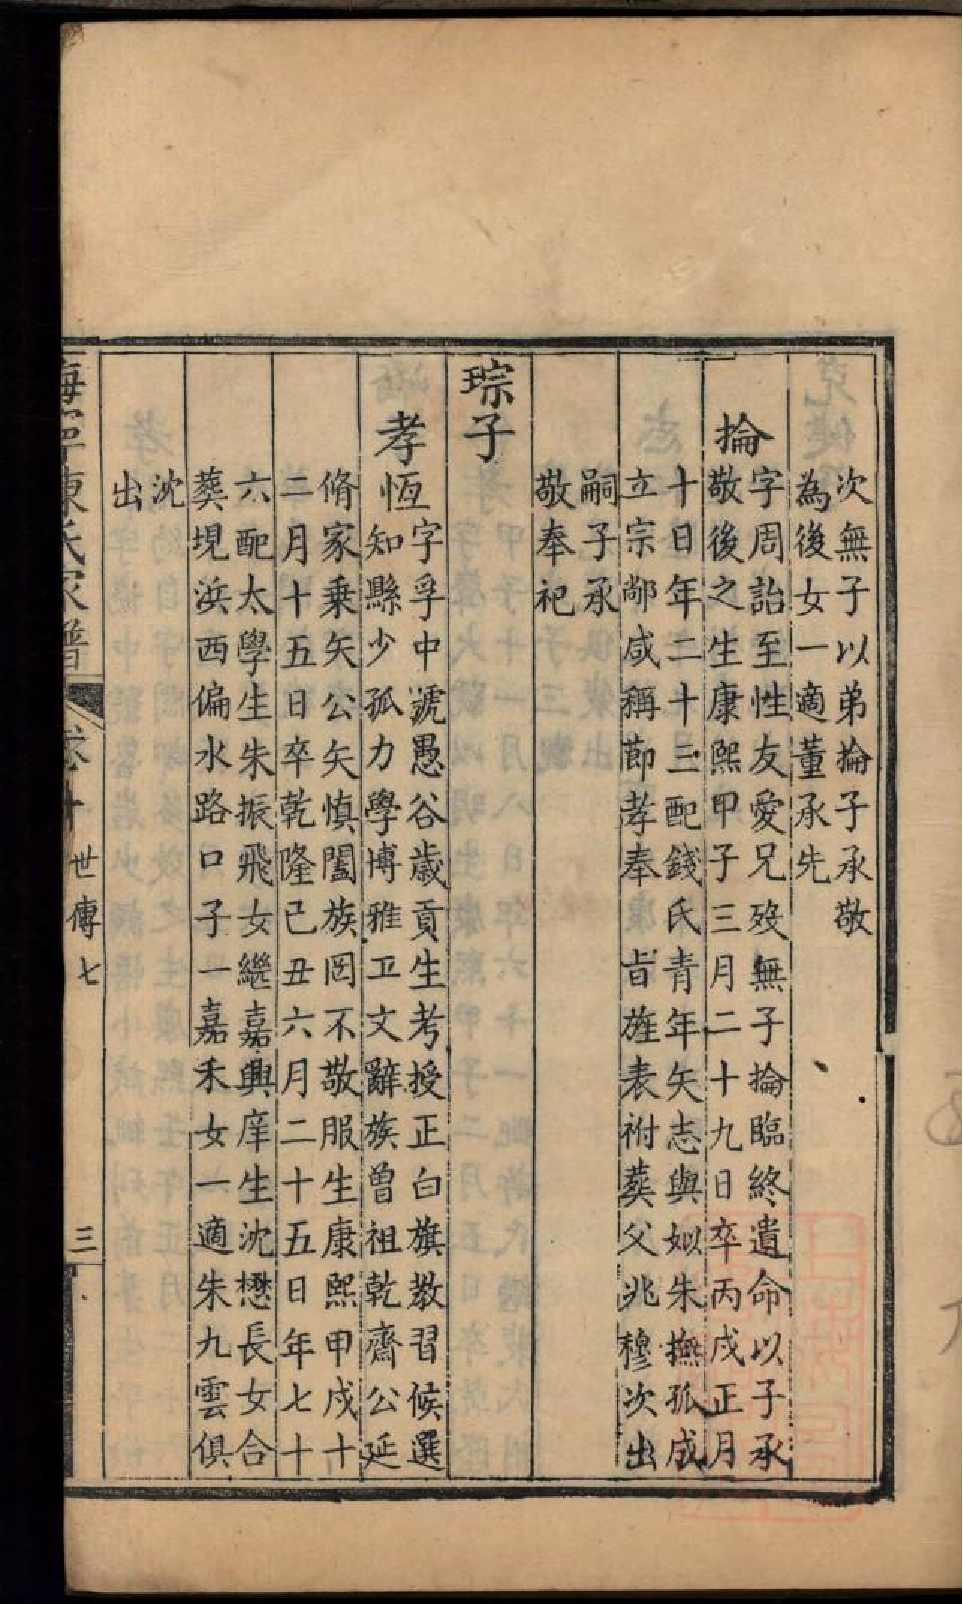 次無子以弟掄子承敬
為後女一適董承先
掄
字周詒至性友愛兄歿無子掄臨終遺命以子承
敬後之生康熙甲子三月二十九日卒丙戌正月
十日年二十三配錢氏青年矢志與姒朱撫孤成
立宗鄰咸稱節孝奉旨旌表祔葬父兆穆次出
嗣子承
敬奉祀
琮子
孝恆
字孚中號愚谷歲貢生考授正白旗教習候選
知縣少孤力學博雅工文辭族曾祖乾齋公延
脩家乗矢公矢慎闔族罔不敬服生康熙甲戌十
二月十五日卒乾隆己丑六月二十五日年七十
六配太學生朱振飛女繼嘉興庠生沈懋長女合
葬垷浜西偏水路口子一嘉禾女一適朱九雲俱
沈
出
海寧陳氏家譜
卷十
世傳七
三